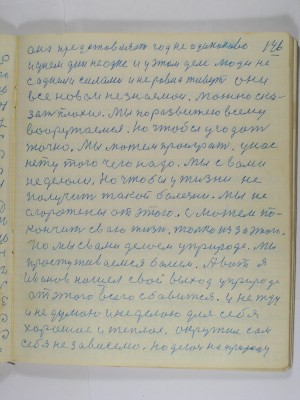 она представляет год не одинаково 146
и у нем дни не одне и у этом деле люди не
с одними силами и неровно живут они
все новые незнакомои. Можно ска-
зать плохие. Мы по развитию всему
вооружаемся. Но чтобы угодать
точно. Мы можем проиграть. у нас
нету того чего надо. Мы с вами
не делали. Но чтобы у жизни не
получить такой болезни. Мы не
огорожены от этого. И можем по-
кончить свою жизнь. только из за этого.
Но мы с вами делаем у природе. Мы
простуживаемся болеем. А вот я
Иванов нашел свой выход у природе
от этого всего сбавится. и не жду
и не думаю и не делаю для себя
хорошее и теплое. окружил сам
себя независемо. но делах на природу